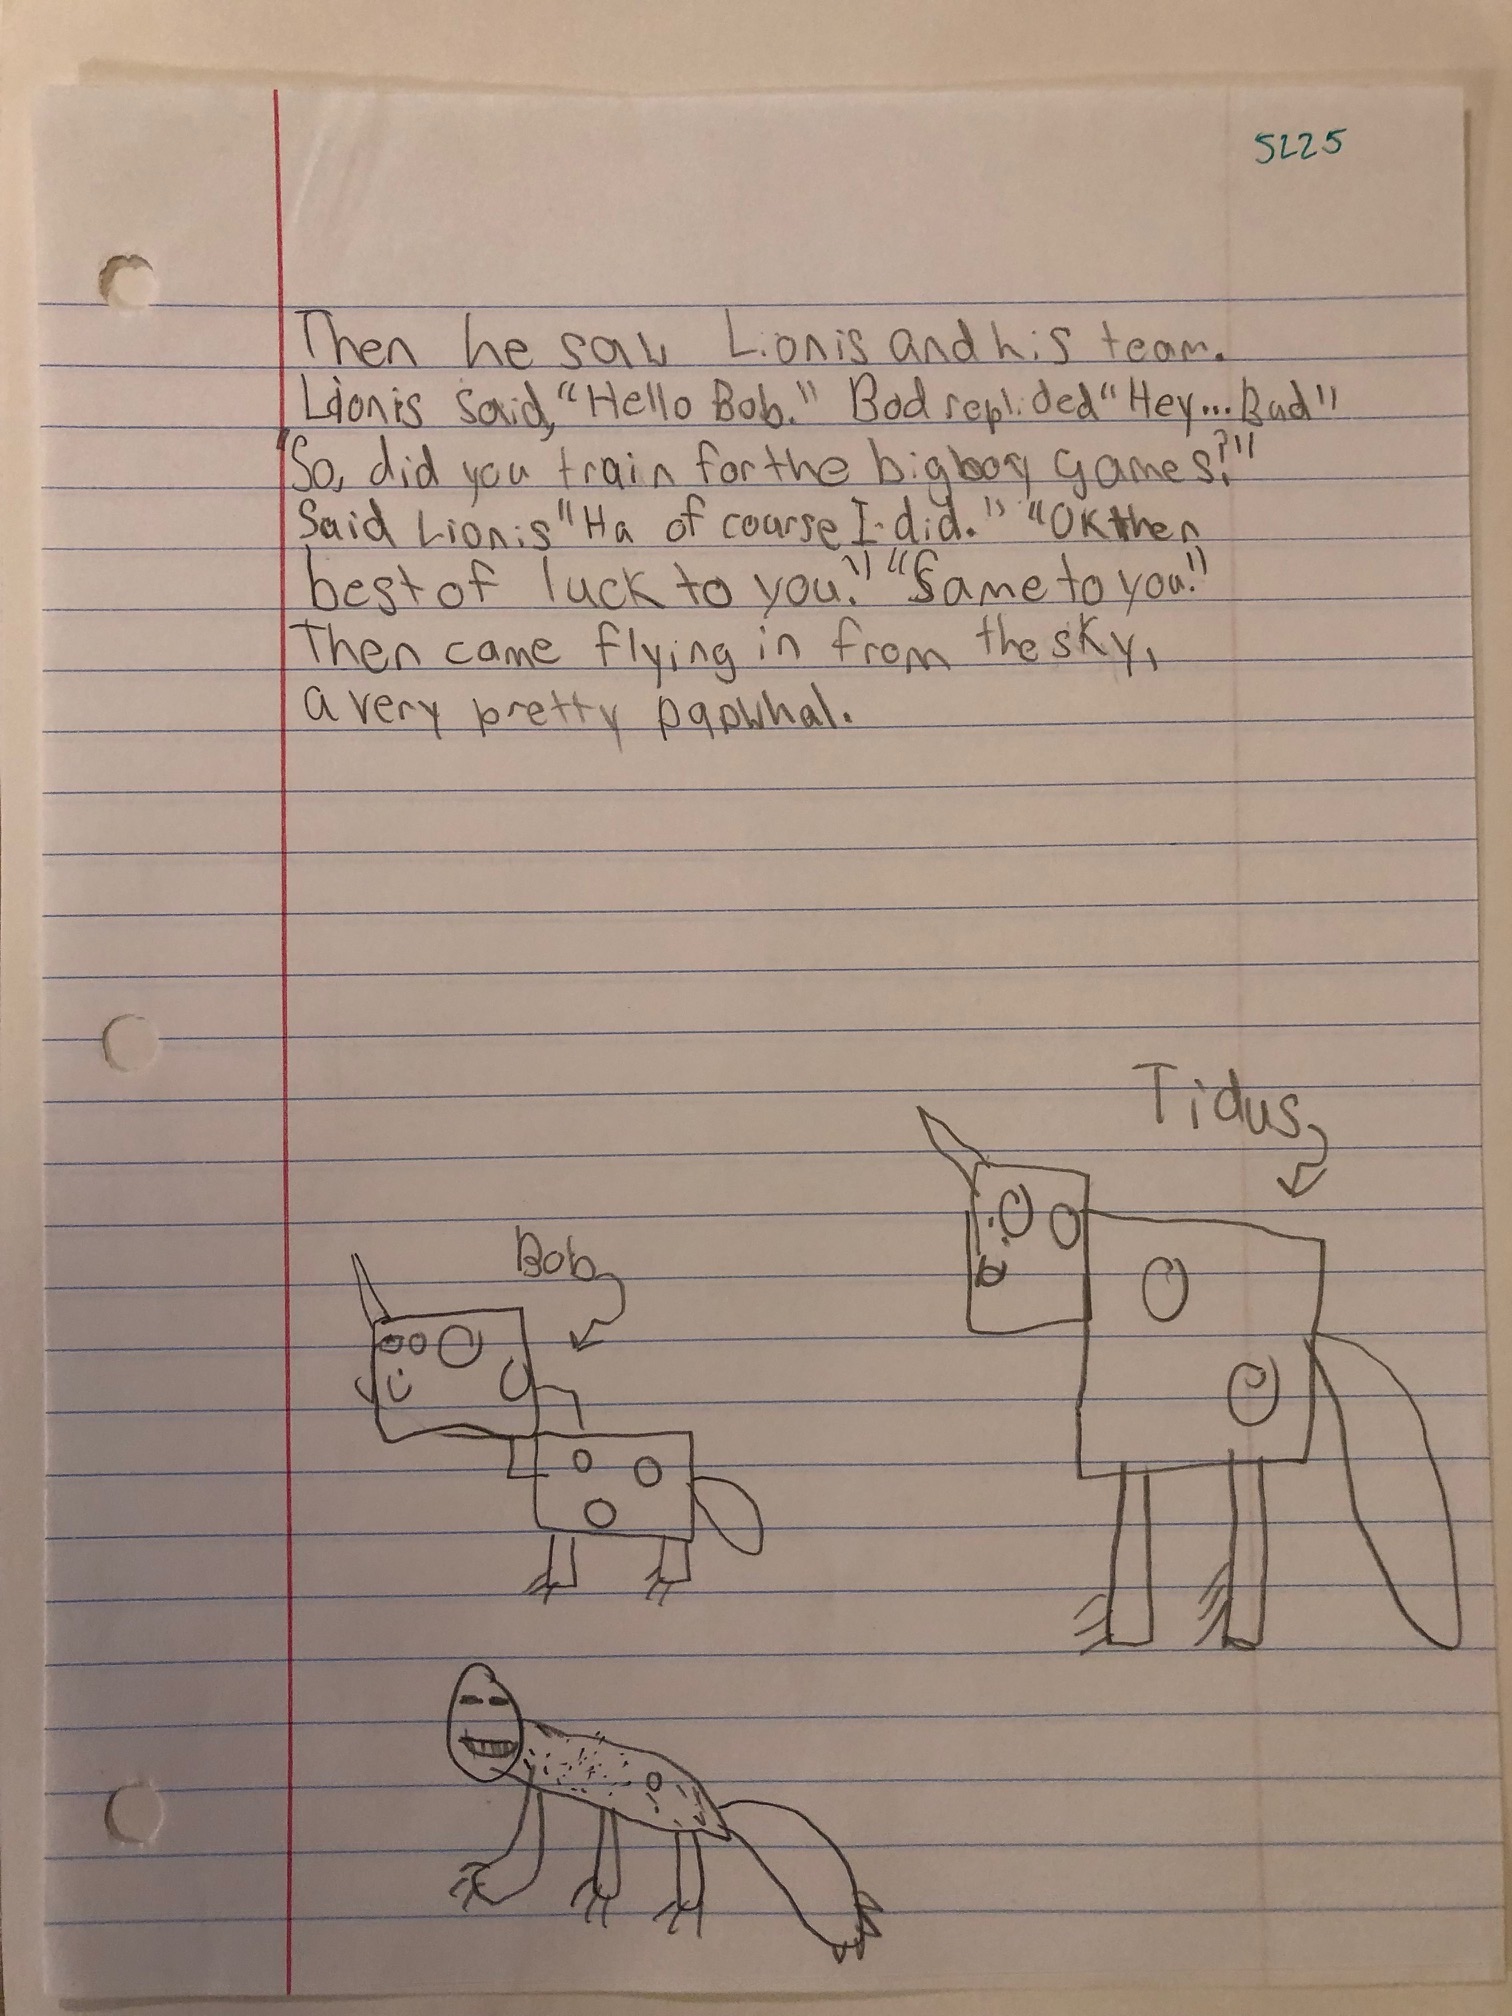 5225
Then he saw Lionis and his team.
Lionis said, "Hello Bob." Bod replided "Hey... Bad"
"So, did you train for the bigboy games?"
Said Lionis "Ha of course I did." "OK then
best of luck to you." "Same to you."
Then came flying in from the sky,
a very pretty papwhal.
Tidus
Bob